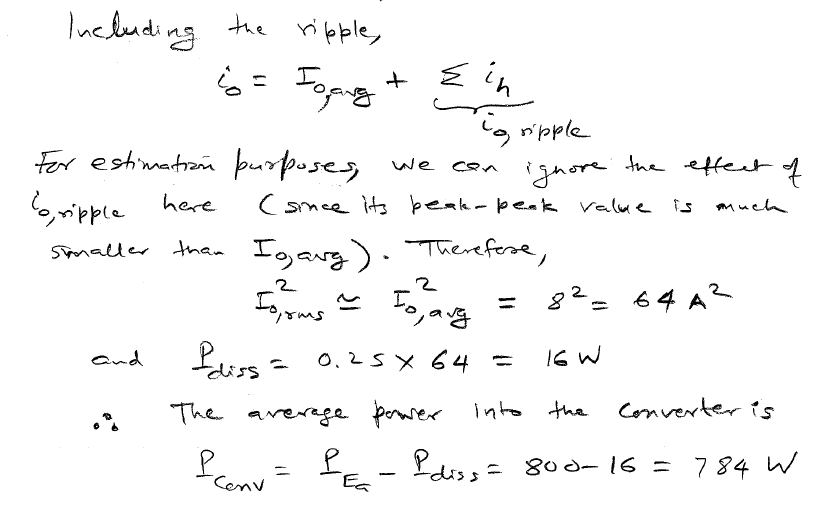 Including the ripple,
i_o = I_o,avg + Σ i_h
i_o, ripple
For estimation purposes, we can ignore the effect of
i_o,ripple here (since its peak-peak value is much
smaller than I_o,avg). Therefore,
I²_o,rms ≃ I²_o,avg = 8² = 64 A²
and P_diss = 0.25 × 64 = 16 W
∴ The average power into the converter is
P_Conv = P_Ea - P_diss = 800 - 16 = 784 W